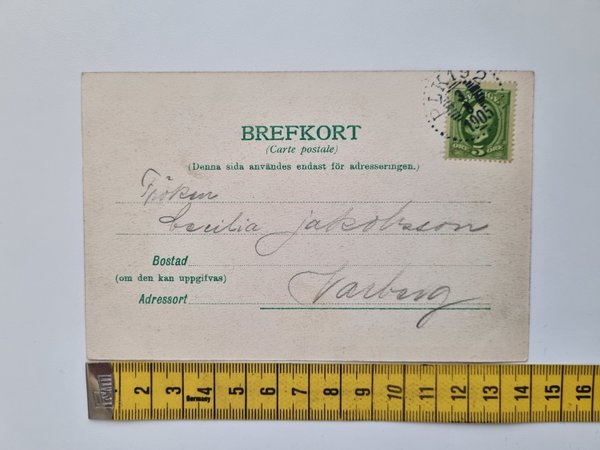 PLK 192
1905
SVERIGE
ÖRE 5 ÖRE
BREFKORT
(Carte postale)
(Denna sida användes endast för adresseringen.)
Fröken
Cecilia Jakobsson
Bostad
(om den kan uppgifvas)
Varberg
Adressort
2 3 4 5 6 7 8 9 10 11 12 13 14 15 16
Germany